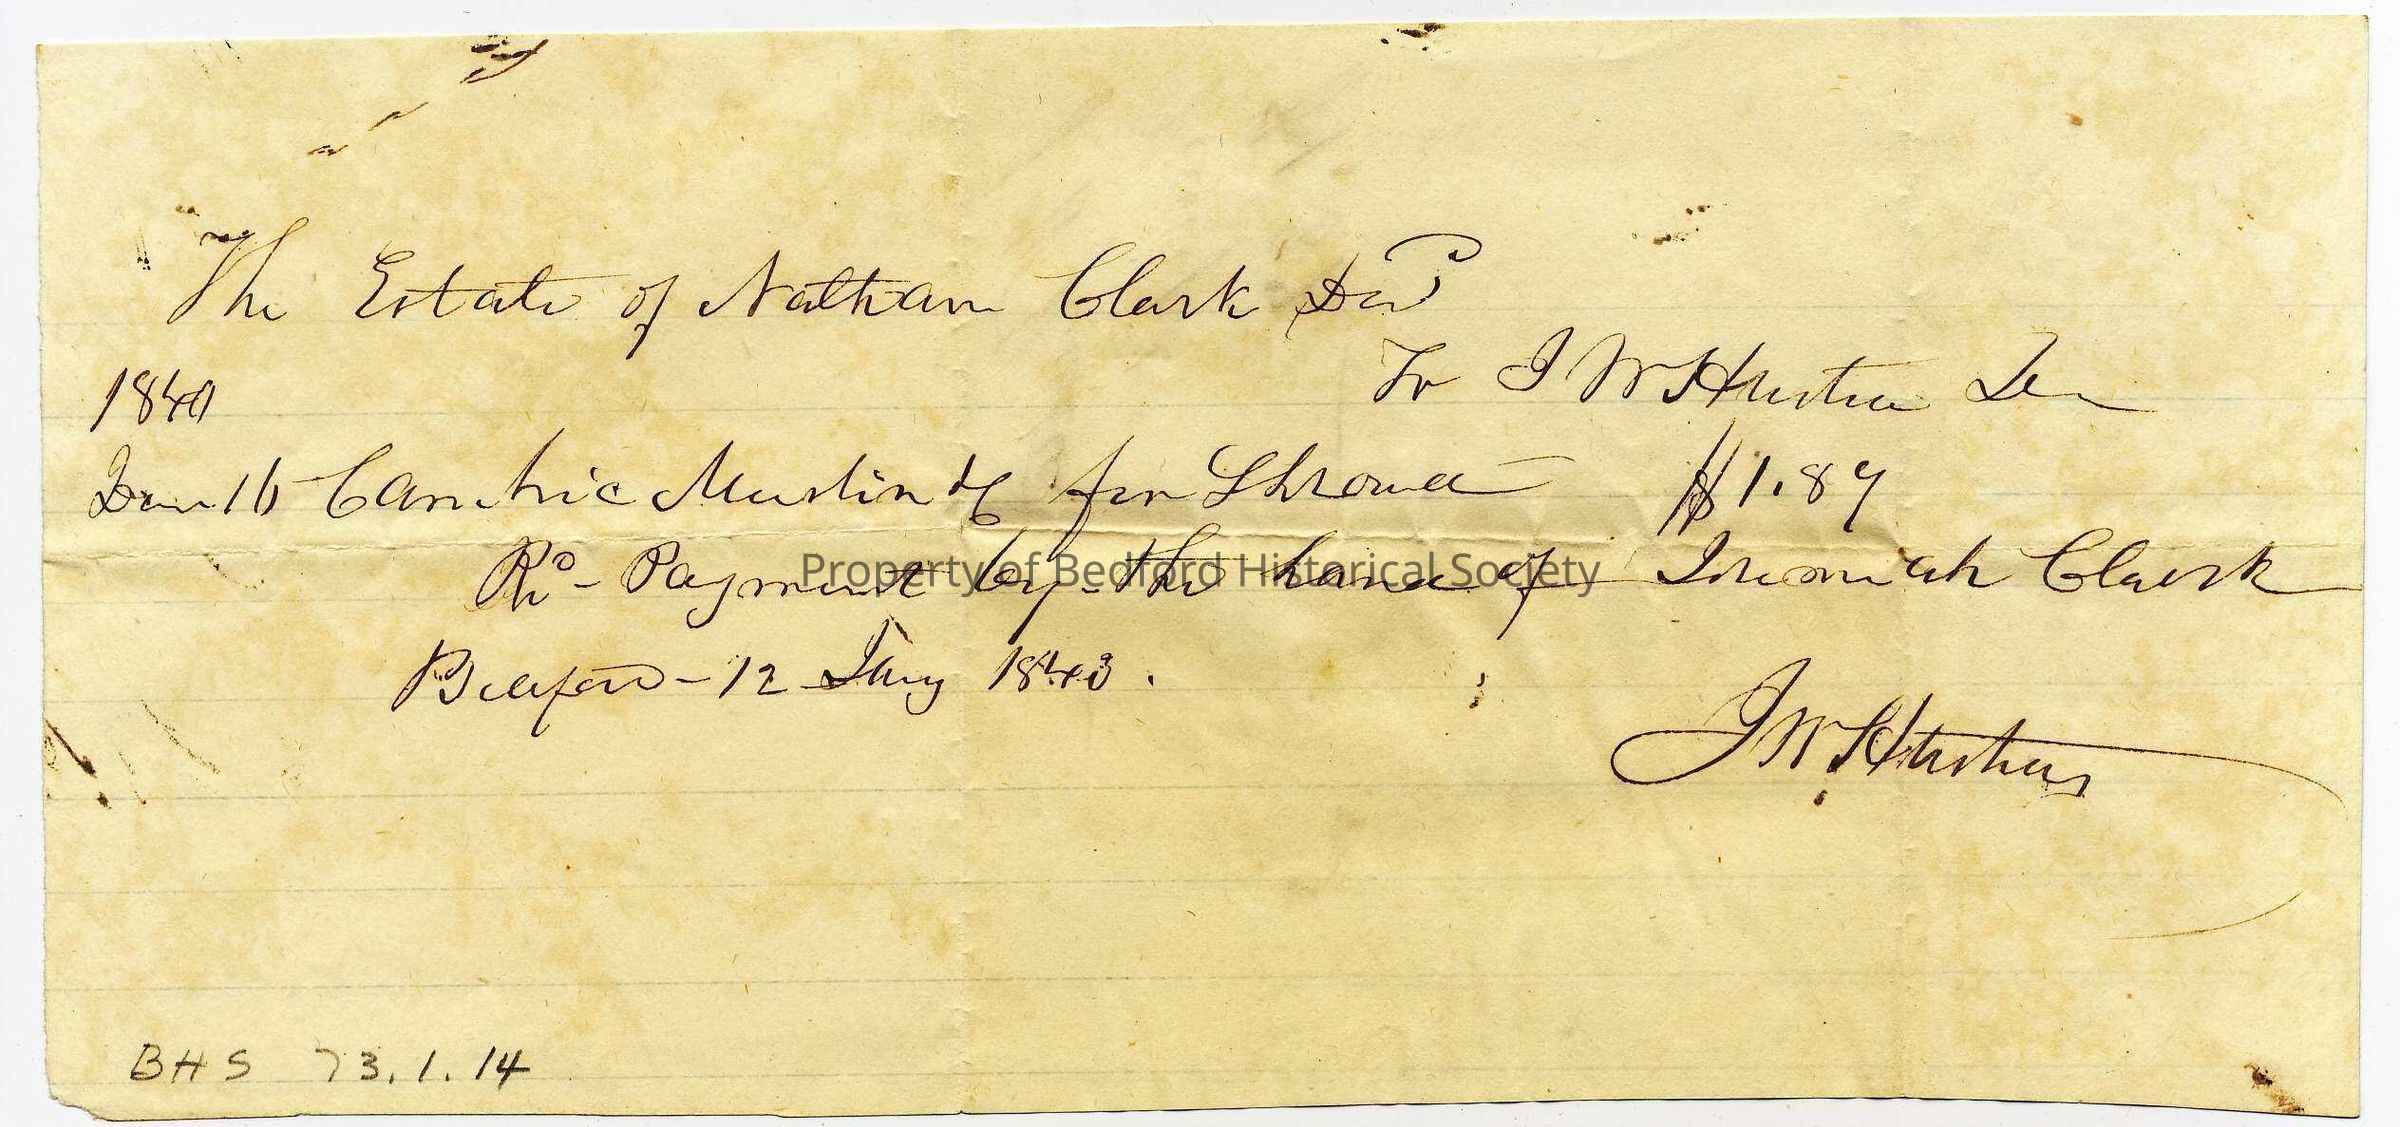 The Estate of Nathan Clark Decd
To J W Hustin Dr
1840
Cambric Muslin &c for Shroud $1.87
Rd Payment by the hand of Jeremiah Clark
Bedford - 12 Jany 1843.
J W Hustin
Property of Bedford Historical Society
BHS 73.1.14